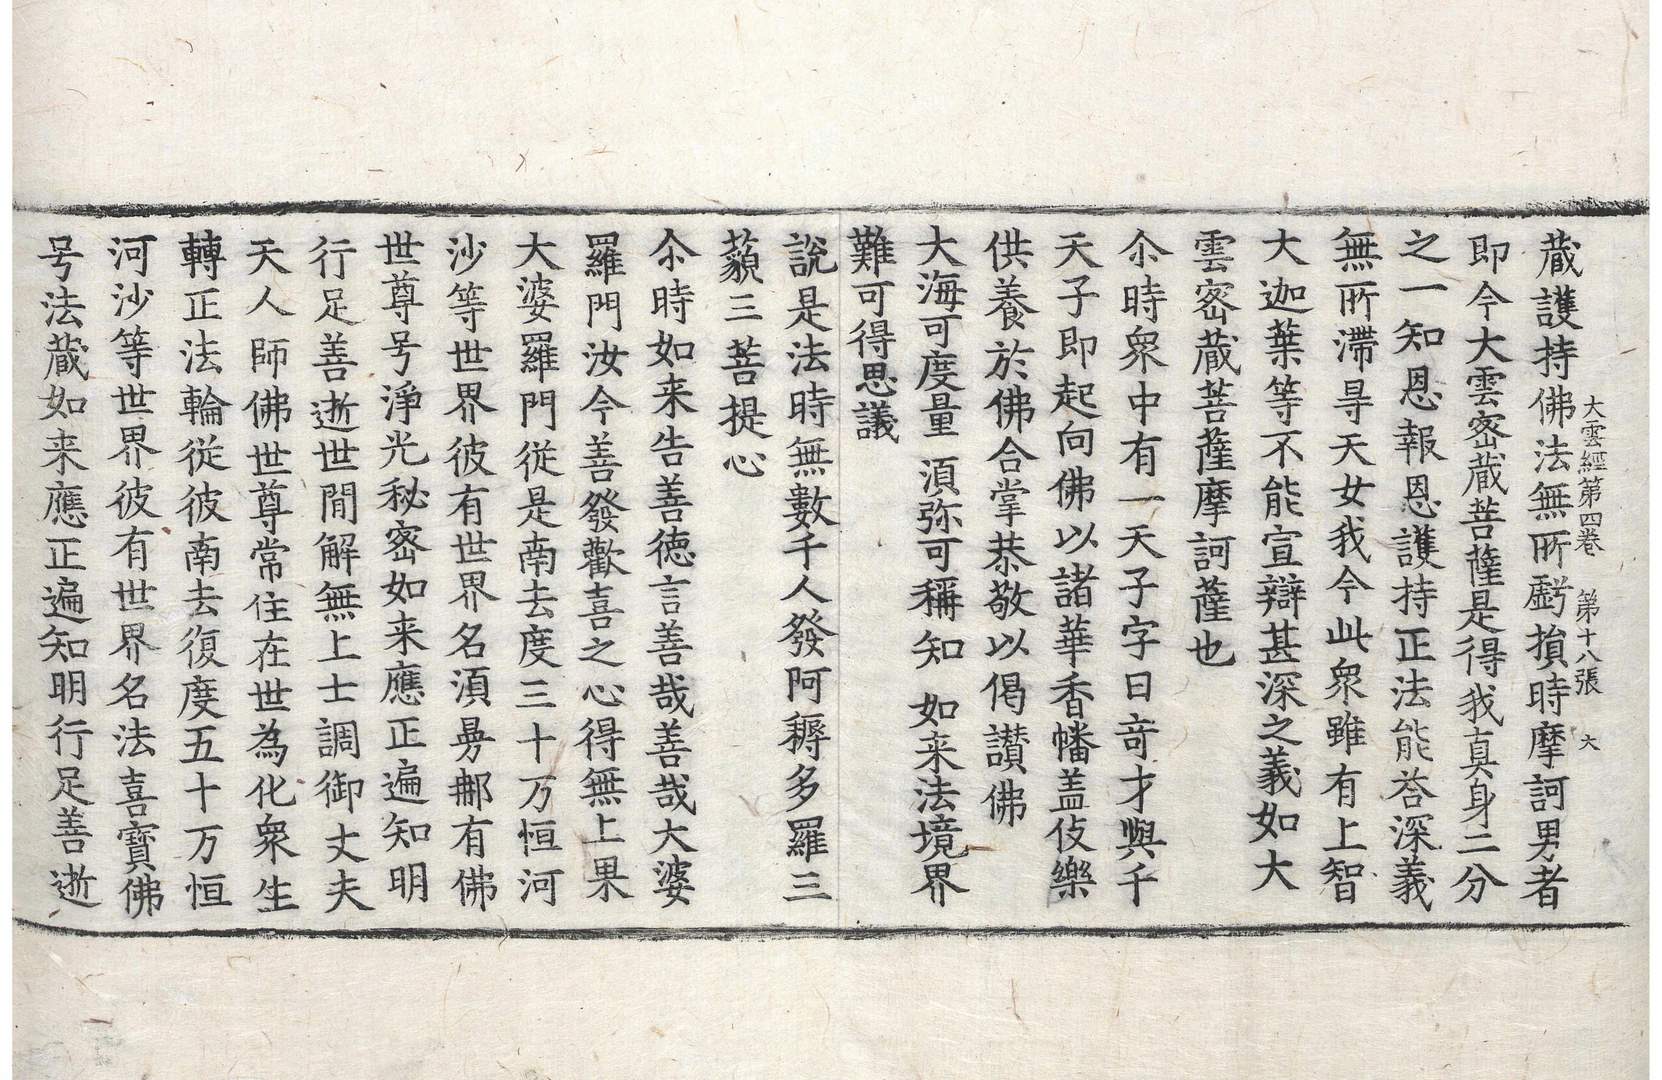 大雲經第四卷 第十八張 大
蔵護持佛法無所虧損時摩訶男者
即今大雲密蔵菩薩是得我真身二分
之一知恩報恩護持正法能荅深義
無所滯㝵天女我今此衆雖有上智
大迦葉等不能宣辯甚深之義如大
雲密蔵菩薩摩訶薩也
尒時衆中有一天子字曰竒才與千
天子即起向佛以諸華香幡盖伎樂
供養於佛合掌恭敬以偈讃佛
大海可度量 湏弥可稱知 如来法境界
難可得思議
說是法時無數千人發阿耨多羅三
藐三菩提心
尒時如来告善德言善哉善哉大婆
羅門汝今善發歡喜之心得無上果
大婆羅門從是南去度三十万恒河
沙等世界彼有世界名湏曼𨚗有佛
世尊号淨光秘密如来應正遍知明
行足善逝世間解無上士調御丈夫
天人師佛世尊常住在世為化衆生
轉正法輪從彼南去復度五十万恒
河沙等世界彼有世界名法喜寶佛
号法蔵如来應正遍知明行足善逝